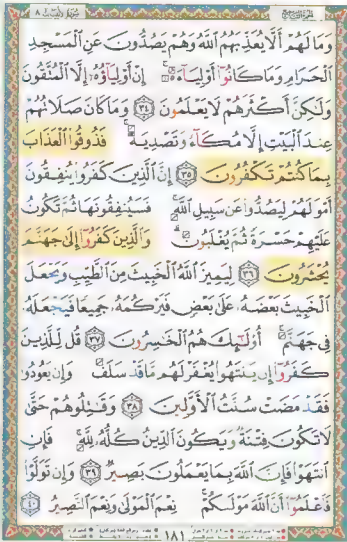 وَمَا لَهُمْ أَلَّا يُعَذِّبَهُمُ ٱللَّهُ وَهُمْ يَصُدُّونَ عَنِ ٱلْمَسْجِدِ
ٱلْحَرَامِ وَمَا كَانُوٓا۟ أَوْلِيَآءَهُۥٓ إِنْ أَوْلِيَآؤُهُۥٓ إِلَّا ٱلْمُتَّقُونَ
وَلَٰكِنَّ أَكْثَرَهُمْ لَا يَعْلَمُونَ ٣٤ وَمَا كَانَ صَلَاتُهُمْ
عِندَ ٱلْبَيْتِ إِلَّا مُكَآءً وَتَصْدِيَةً فَذُوقُوا۟ ٱلْعَذَابَ
بِمَا كُنتُمْ تَكْفُرُونَ ٣٥ إِنَّ ٱلَّذِينَ كَفَرُوا۟ يُنفِقُونَ
أَمْوَٰلَهُمْ لِيَصُدُّوا۟ عَن سَبِيلِ ٱللَّهِ فَسَيُنفِقُونَهَا ثُمَّ تَكُونُ
عَلَيْهِمْ حَسْرَةً ثُمَّ يُغْلَبُونَ وَٱلَّذِينَ كَفَرُوٓا۟ إِلَىٰ جَهَنَّمَ
يُحْشَرُونَ ٣٦ لِيَمِيزَ ٱللَّهُ ٱلْخَبِيثَ مِنَ ٱلطَّيِّبِ وَيَجْعَلَ
ٱلْخَبِيثَ بَعْضَهُۥ عَلَىٰ بَعْضٍ فَيَرْكُمَهُۥ جَمِيعًا فَيَجْعَلَهُۥ
فِى جَهَنَّمَ أُو۟لَٰٓئِكَ هُمُ ٱلْخَٰسِرُونَ ٣٧ قُل لِّلَّذِينَ
كَفَرُوٓا۟ إِن يَنتَهُوا۟ يُغْفَرْ لَهُم مَّا قَدْ سَلَفَ وَإِن يَعُودُوا۟
فَقَدْ مَضَتْ سُنَّتُ ٱلْأَوَّلِينَ ٣٨ وَقَٰتِلُوهُمْ حَتَّىٰ
لَا تَكُونَ فِتْنَةٌ وَيَكُونَ ٱلدِّينُ كُلُّهُۥ لِلَّهِ فَإِنِ
ٱنتَهَوْا۟ فَإِنَّ ٱللَّهَ بِمَا يَعْمَلُونَ بَصِيرٌ ٣٩ وَإِن تَوَلَّوْا۟
فَٱعْلَمُوٓا۟ أَنَّ ٱللَّهَ مَوْلَىٰكُمْ نِعْمَ ٱلْمَوْلَىٰ وَنِعْمَ ٱلنَّصِيرُ ٤٠
١٨١